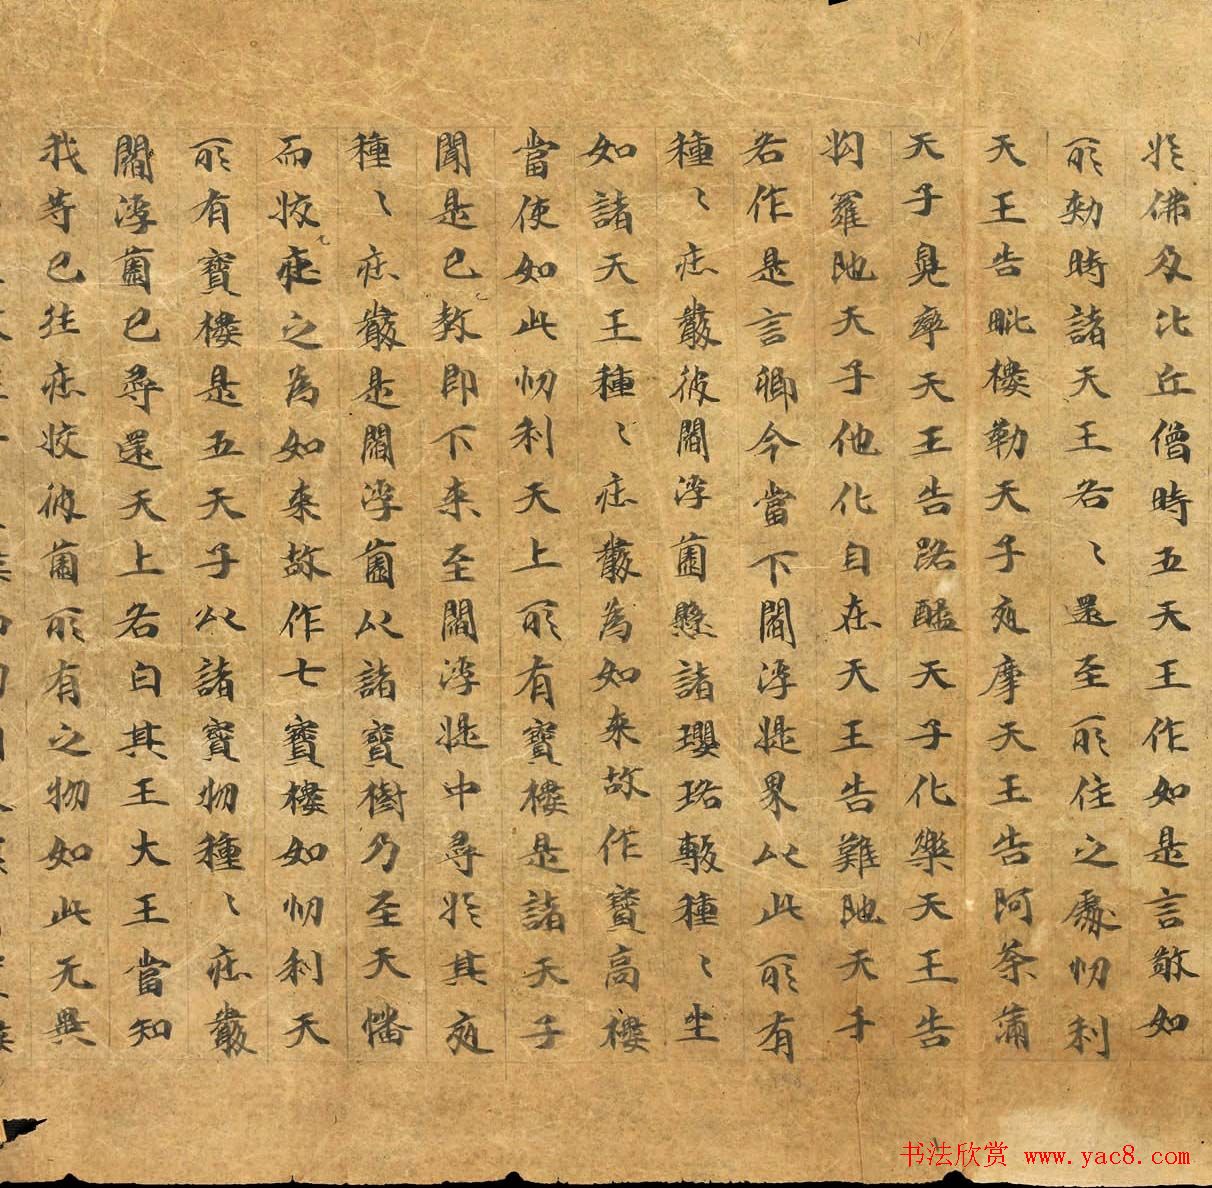 於佛及比丘僧時五天王作如是言敬如
所勑時諸天王各〻還至所住之處忉利
天王告毗樓勒天子夜摩天王告阿荼蒲
天子兜率天王告路醯天子化樂天王告
拘羅陁天子他化自在天王告難陁天子
各作是言卿今當下閻浮提界以此所有
種〻莊嚴彼閻浮薗懸諸瓔珞敷種〻坐
如諸天王種〻莊嚴為如来故作寳高樓
當使如此忉利天上所有寳樓是諸天子
聞是已教即下来至閻浮提中尋於其夜
種〻莊嚴是閻浮薗以諸寳樹乃至天幡
而挍莊之為如来故作七寳樓如忉利天
所有寳樓是五天子以諸寳物種〻莊嚴
閻浮薗已尋還天上各白其王大王當知
我等已往莊挍彼薗所有之物如此无異
书法欣赏 www.yac8.com